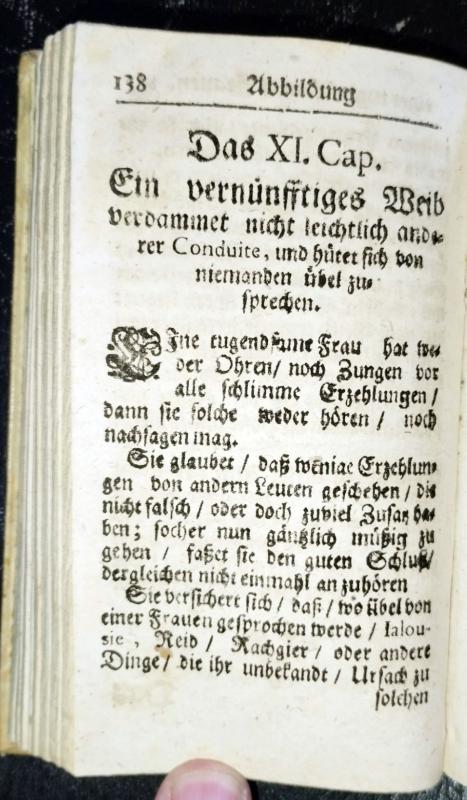 138 Abbildung
Das XI. Cap.
Ein vernünfftiges Weib
verdammet nicht leichtlich ande-
rer Conduite, und hütet sich von
niemanden übel zu-
sprechen.
EIne tugendsame Frau hat we-
der Ohren/ noch Zungen vor
alle schlimme Erzehlungen/
dann sie solche weder hören/ noch
nachsagen mag.
Sie glaubet/ daß wenige Erzehlun-
gen von andern Leuten geschehen/ die
nicht falsch/ oder doch zuviel Zusatz ha-
ben; socher nun gäntzlich müßig zu
gehen/ faßet sie den guten Schluß/
dergleichen nicht einmahl anzuhören
Sie versichert sich/ daß/ wo übel von
einer Frauen gesprochen werde/ Ialou-
sie, Neid/ Rachgier/ oder andere
Dinge/ die ihr unbekandt/ Ursach zu
solchen